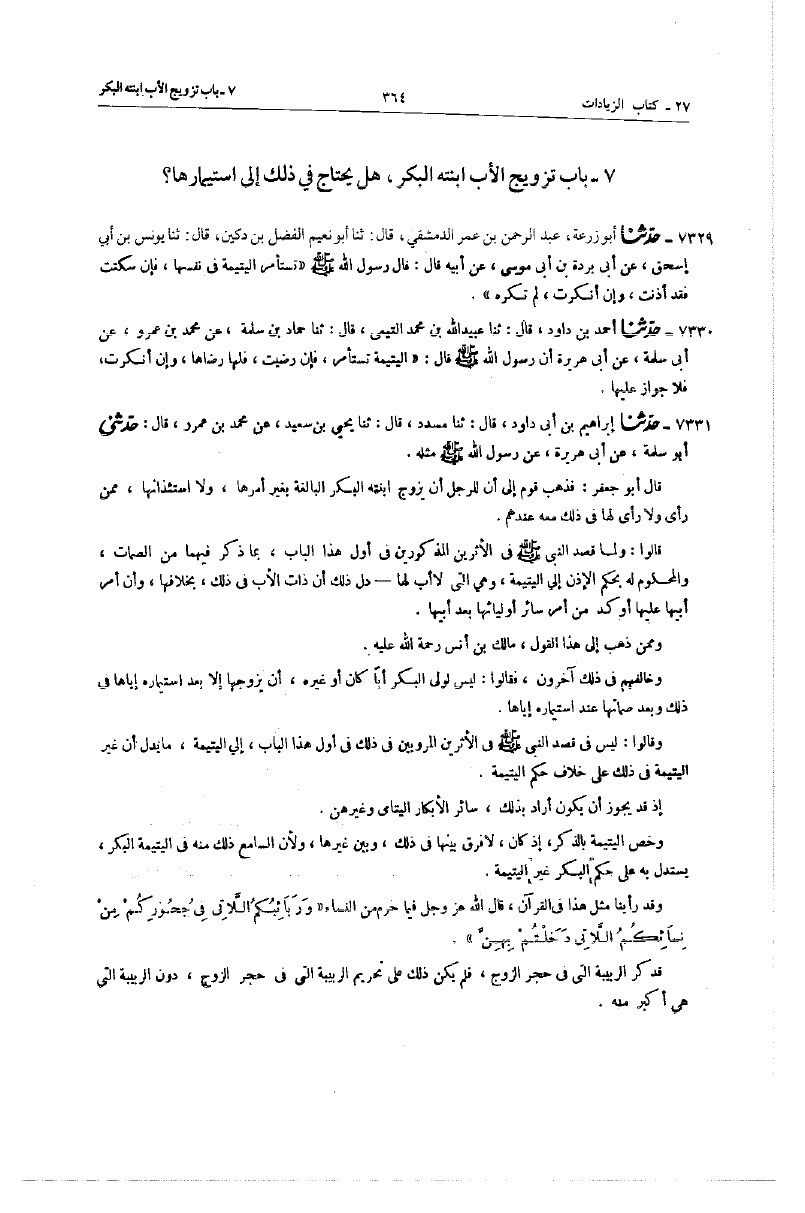 ٢٧ ـ كتاب الزيادات ٣٦٤ ٧ ـ باب تزويج الأب ابنته البكر
٧ ـ باب تزويج الأب ابنته البكر ، هل يحتاج في ذلك إلى استيمارها؟
٧٣٢٩ ـ حدّثنا أبو زرعة، عبد الرحمن بن عمر الدمشقي، قال: ثنا أبو نعيم الفضل بن دكين، قال: ثنا يونس بن أبي
إسحق ، عن أبى بردة بن أبى موسى ، عن أبيه قال : قال رسول الله ﷺ «تستأمر اليتيمة فى نفسها ، فإن سكتت
فقد أذنت ، وإن أنكرت ، لم تكره » .
٧٣٣٠ ـ حدّثنا أحمد بن داود ، قال : ثنا عبيدالله بن محمد التيمى ، قال : ثنا حماد بن سلمة ، عن محمد بن عمرو ، عن
أبى سلمة ، عن أبى هريرة أن رسول الله ﷺ قال : « اليتيمة تستأمر ، فإن رضيت ، فلها رضاها ، وإن أنكرت،
فلا جواز عليها .
٧٣٣١ ـ حدّثنا إبراهيم بن أبى داود ، قال : ثنا مسدد ، قال : ثنا يحيى بن سعيد ، عن محمد بن عمرو ، قال : حدّثني
أبو سلمة ، عن أبى هريرة ، عن رسول الله ﷺ مثله .
قال أبو جعفر : فذهب قوم إلى أن للرجل أن يزوج ابنته البكر البالغة بغير أمرها ، ولا استئذانها ، ممن
رأى ولا رأى لها فى ذلك معه عندهم .
قالوا : ولما قصد النبى ﷺ فى الأثرين المذكورين فى أول هذا الباب ، بما ذكر فيهما من الصمات ،
والمحكوم له بحكم الإذن إلى اليتيمة ، وهي التى لاأب لها — دل ذلك أن ذات الأب فى ذلك ، بخلافها ، وأن أمر
أبيها عليها أوكد من أمر سائر أوليائها بعد أبيها .
وممن ذهب إلى هذا القول ، مالك بن أنس رحمة الله عليه .
وخالفهم فى ذلك آخرون ، فقالوا : ليس لولى البكر أباً كان أو غيره ، أن يزوجها إلا بعد استيماره إياها فى
ذلك وبعد صماتها عند استيماره إياها .
وقالوا : ليس فى قصد النبى ﷺ فى الأثرين المرويين فى ذلك فى أول هذا الباب ، إلى اليتيمة ، مايدل أن غير
اليتيمة فى ذلك على خلاف حكم اليتيمة .
إذ قد يجوز أن يكون أراد بذلك ، سائر الأبكار اليتاى وغيرهن .
وخص اليتيمة بالذكر، إذ كان ، لافرق بينها فى ذلك ، وبين غيرها ، ولأن السامع ذلك منه فى اليتيمة البكر ،
يستدل به على حكم البكر غير اليتيمة .
وقد رأينا مثل هذا فى القرآن ، قال الله عز وجل فيما حرم من النساء « وَرَبَائِبُكُمُ اللَّاتِى فِى حُجُورِكُمْ مِنْ
نِسَائِكُمُ اللَّاتِى دَخَلْتُمْ بِهِنَّ » .
فذكر الربيبة التى فى حجر الزوج ، فلم يكن ذلك على تحريم الربيبة التى فى حجر الزوج ، دون الربيبة التي
هي أكبر منه .